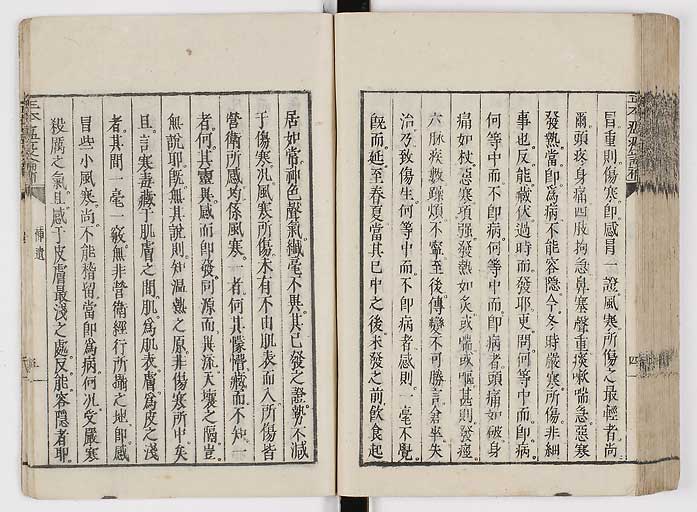 冒重則傷寒即感冒一證風寒所傷之最輕者尚
爾頭疼身痛四肢拘急鼻塞聲重痰嗽喘急惡寒
發熱當即為病不能容隱今冬時嚴寒所傷非細
事也反能藏伏過時而發耶更問何等中而即病
何等中而不即病何等中而即病者頭痛如破身
痛如杖惡寒項强發熱如炙或喘或嘔甚則發痙
六脉疾數躁煩不寧至後傳變不可勝言倉卒失
治乃致傷生何等中而不即病者感則一毫不覺
既而延至春夏當其已中之後未發之前飲食起
居如常神色聲氣纖毫不異其已發之證勢不減
于傷寒况風寒所傷未有不由肌表而入所傷皆
營衛所感均係風寒一者何其懞懵藏而不知一
者何其靈異感而即發同源而異流天壤之隔豈
無說耶既無其說則知溫熱之原非傷寒所中矣
且言寒毒藏于肌膚之間肌為肌表膚為皮之淺
者其間一毫一竅無非營衛經行所攝之地即感
冒些小風寒尚不能稽留當即為病何况受嚴寒
殺厲之氣且感于皮膚最淺之處反能容隱者耶
補遺